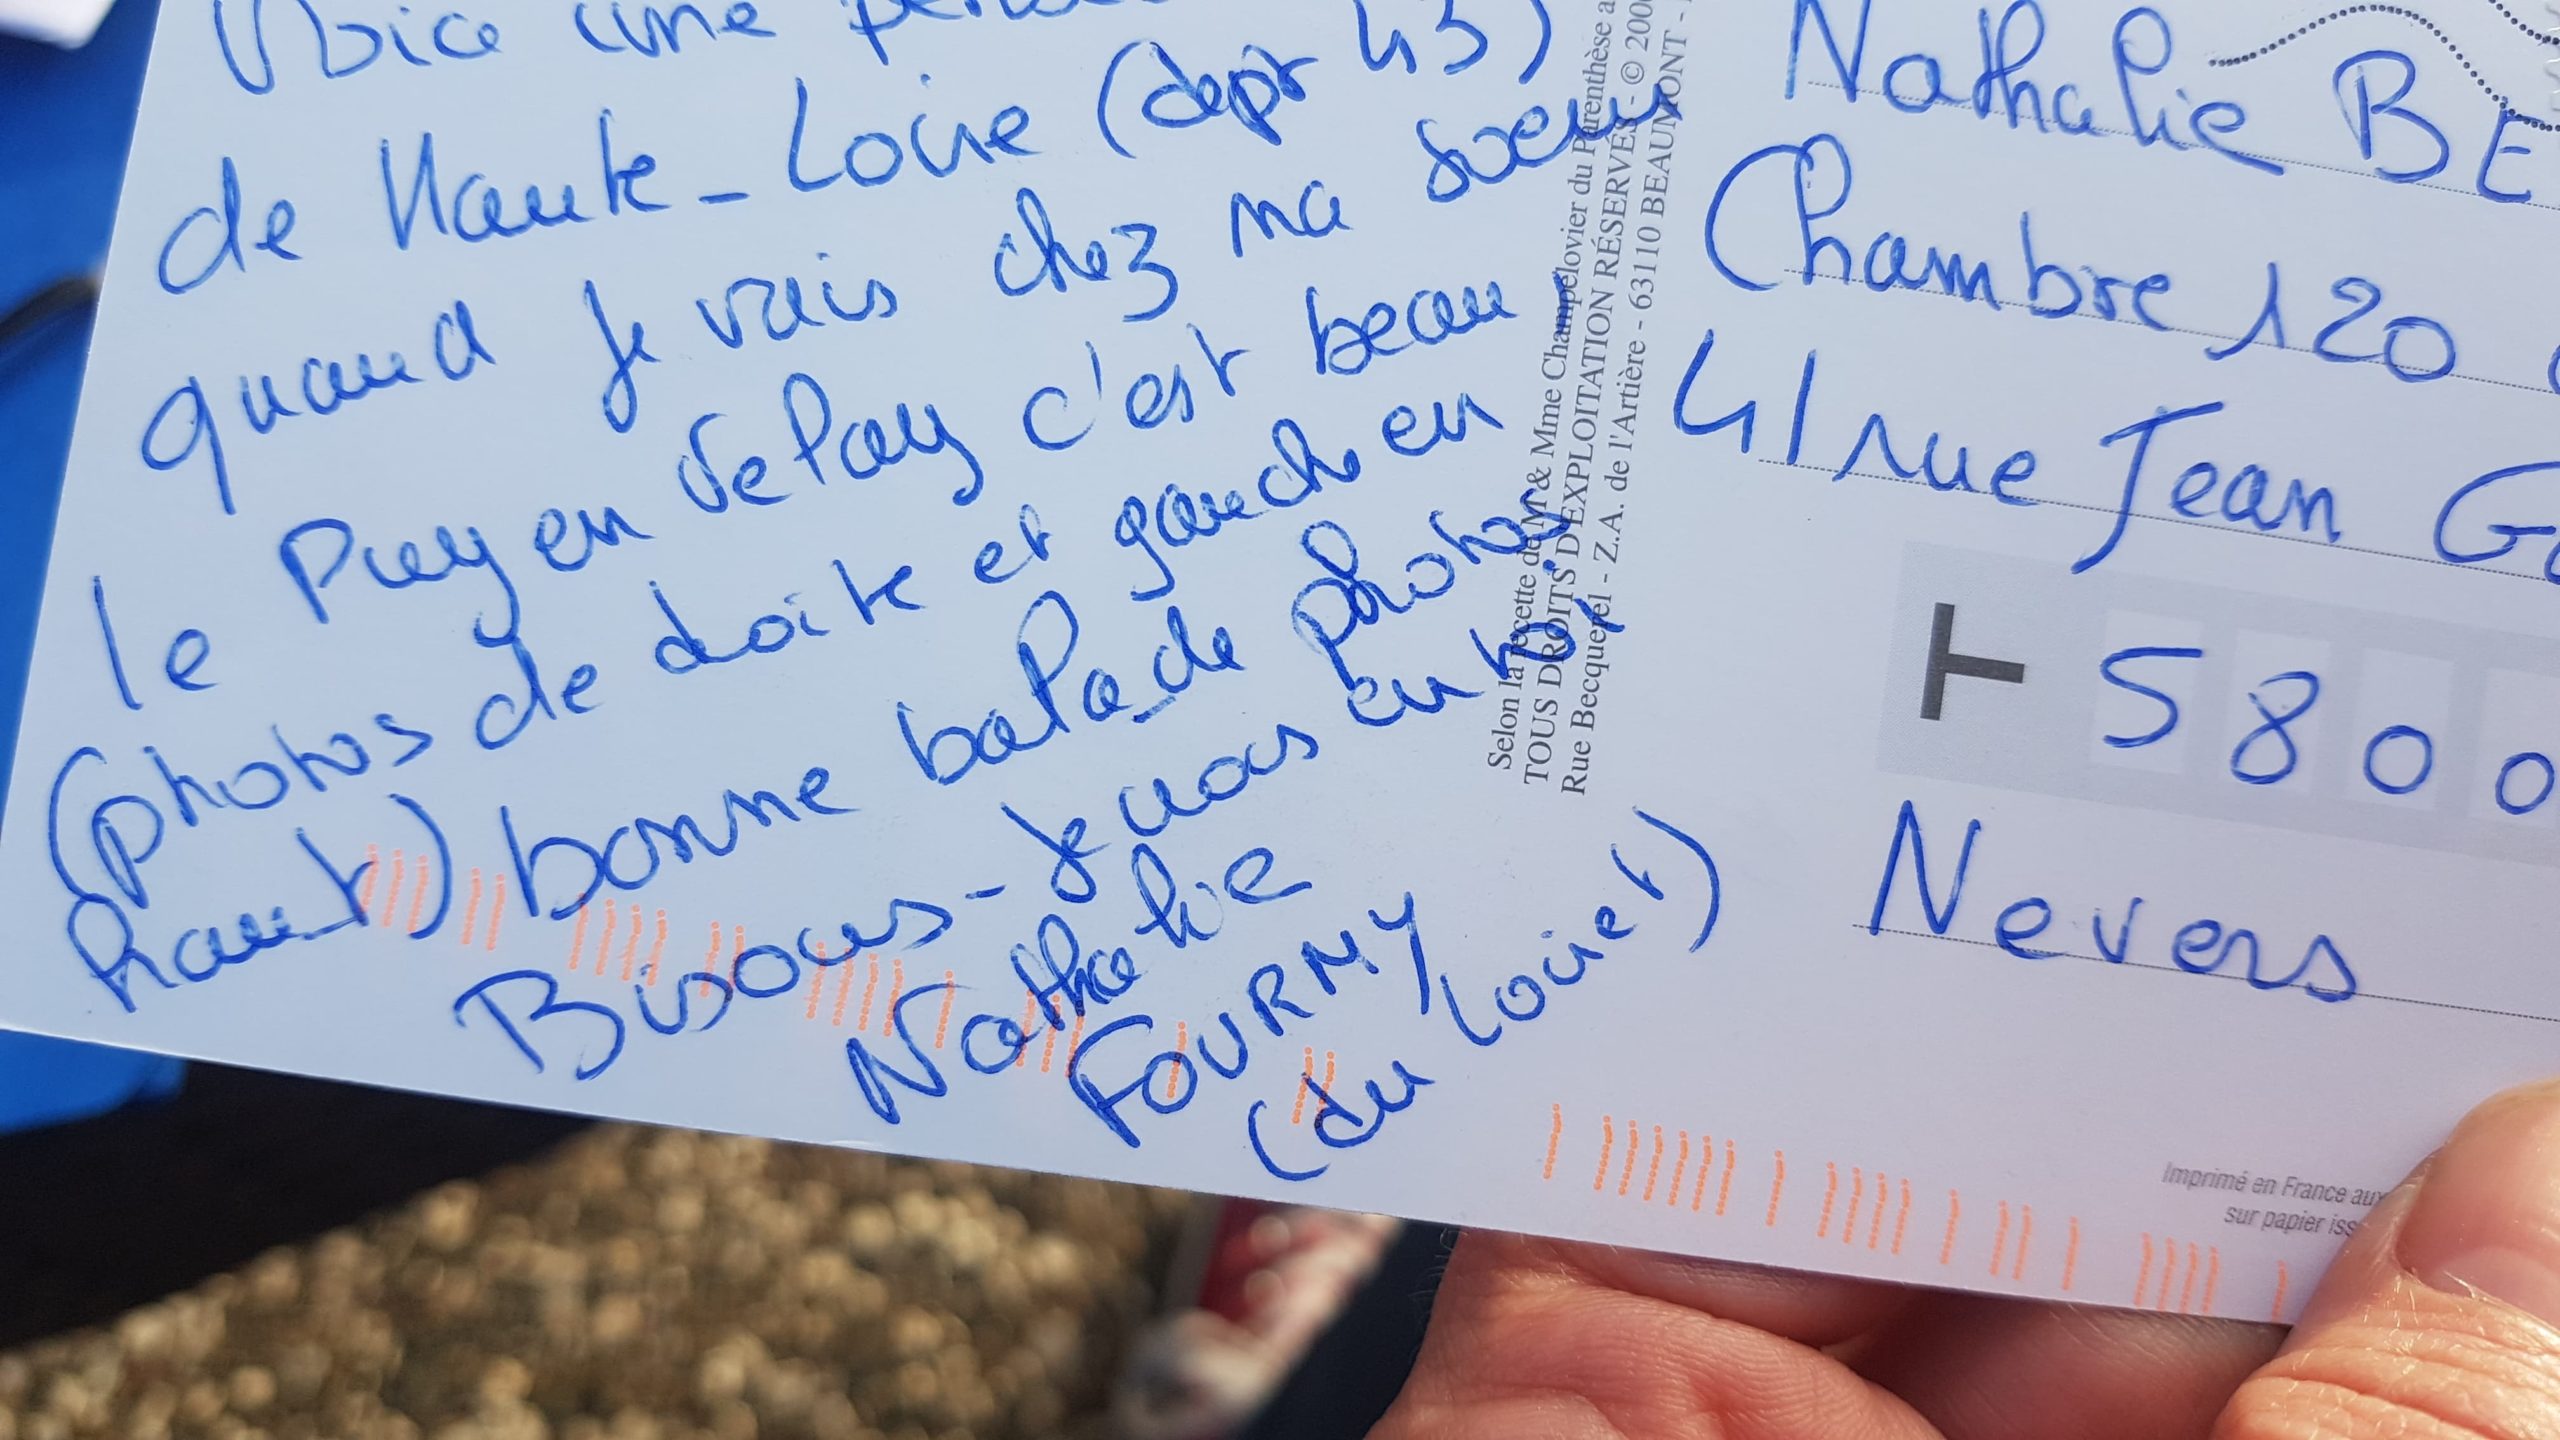 Voici une
de Haute-Loire (dept 43)
quand je vais chez ma soeur
le Puy en Velay c'est beau
(photos de droite et gauche en
haut) bonne balade photos
Bisous - Je vous
Nathalie
FOURMY
(du Loiret)
Selon la recette de M & Mme Champelovier du Parenthèse a
TOUS DROITS D'EXPLOITATION RÉSERVÉS - © 200
Rue Becquerel - Z.A. de l'Artière - 63110 BEAUMONT -
Nathalie BE
Chambre 120
41 rue Jean G
5800
Nevers
Imprimé en France aux
sur papier iss